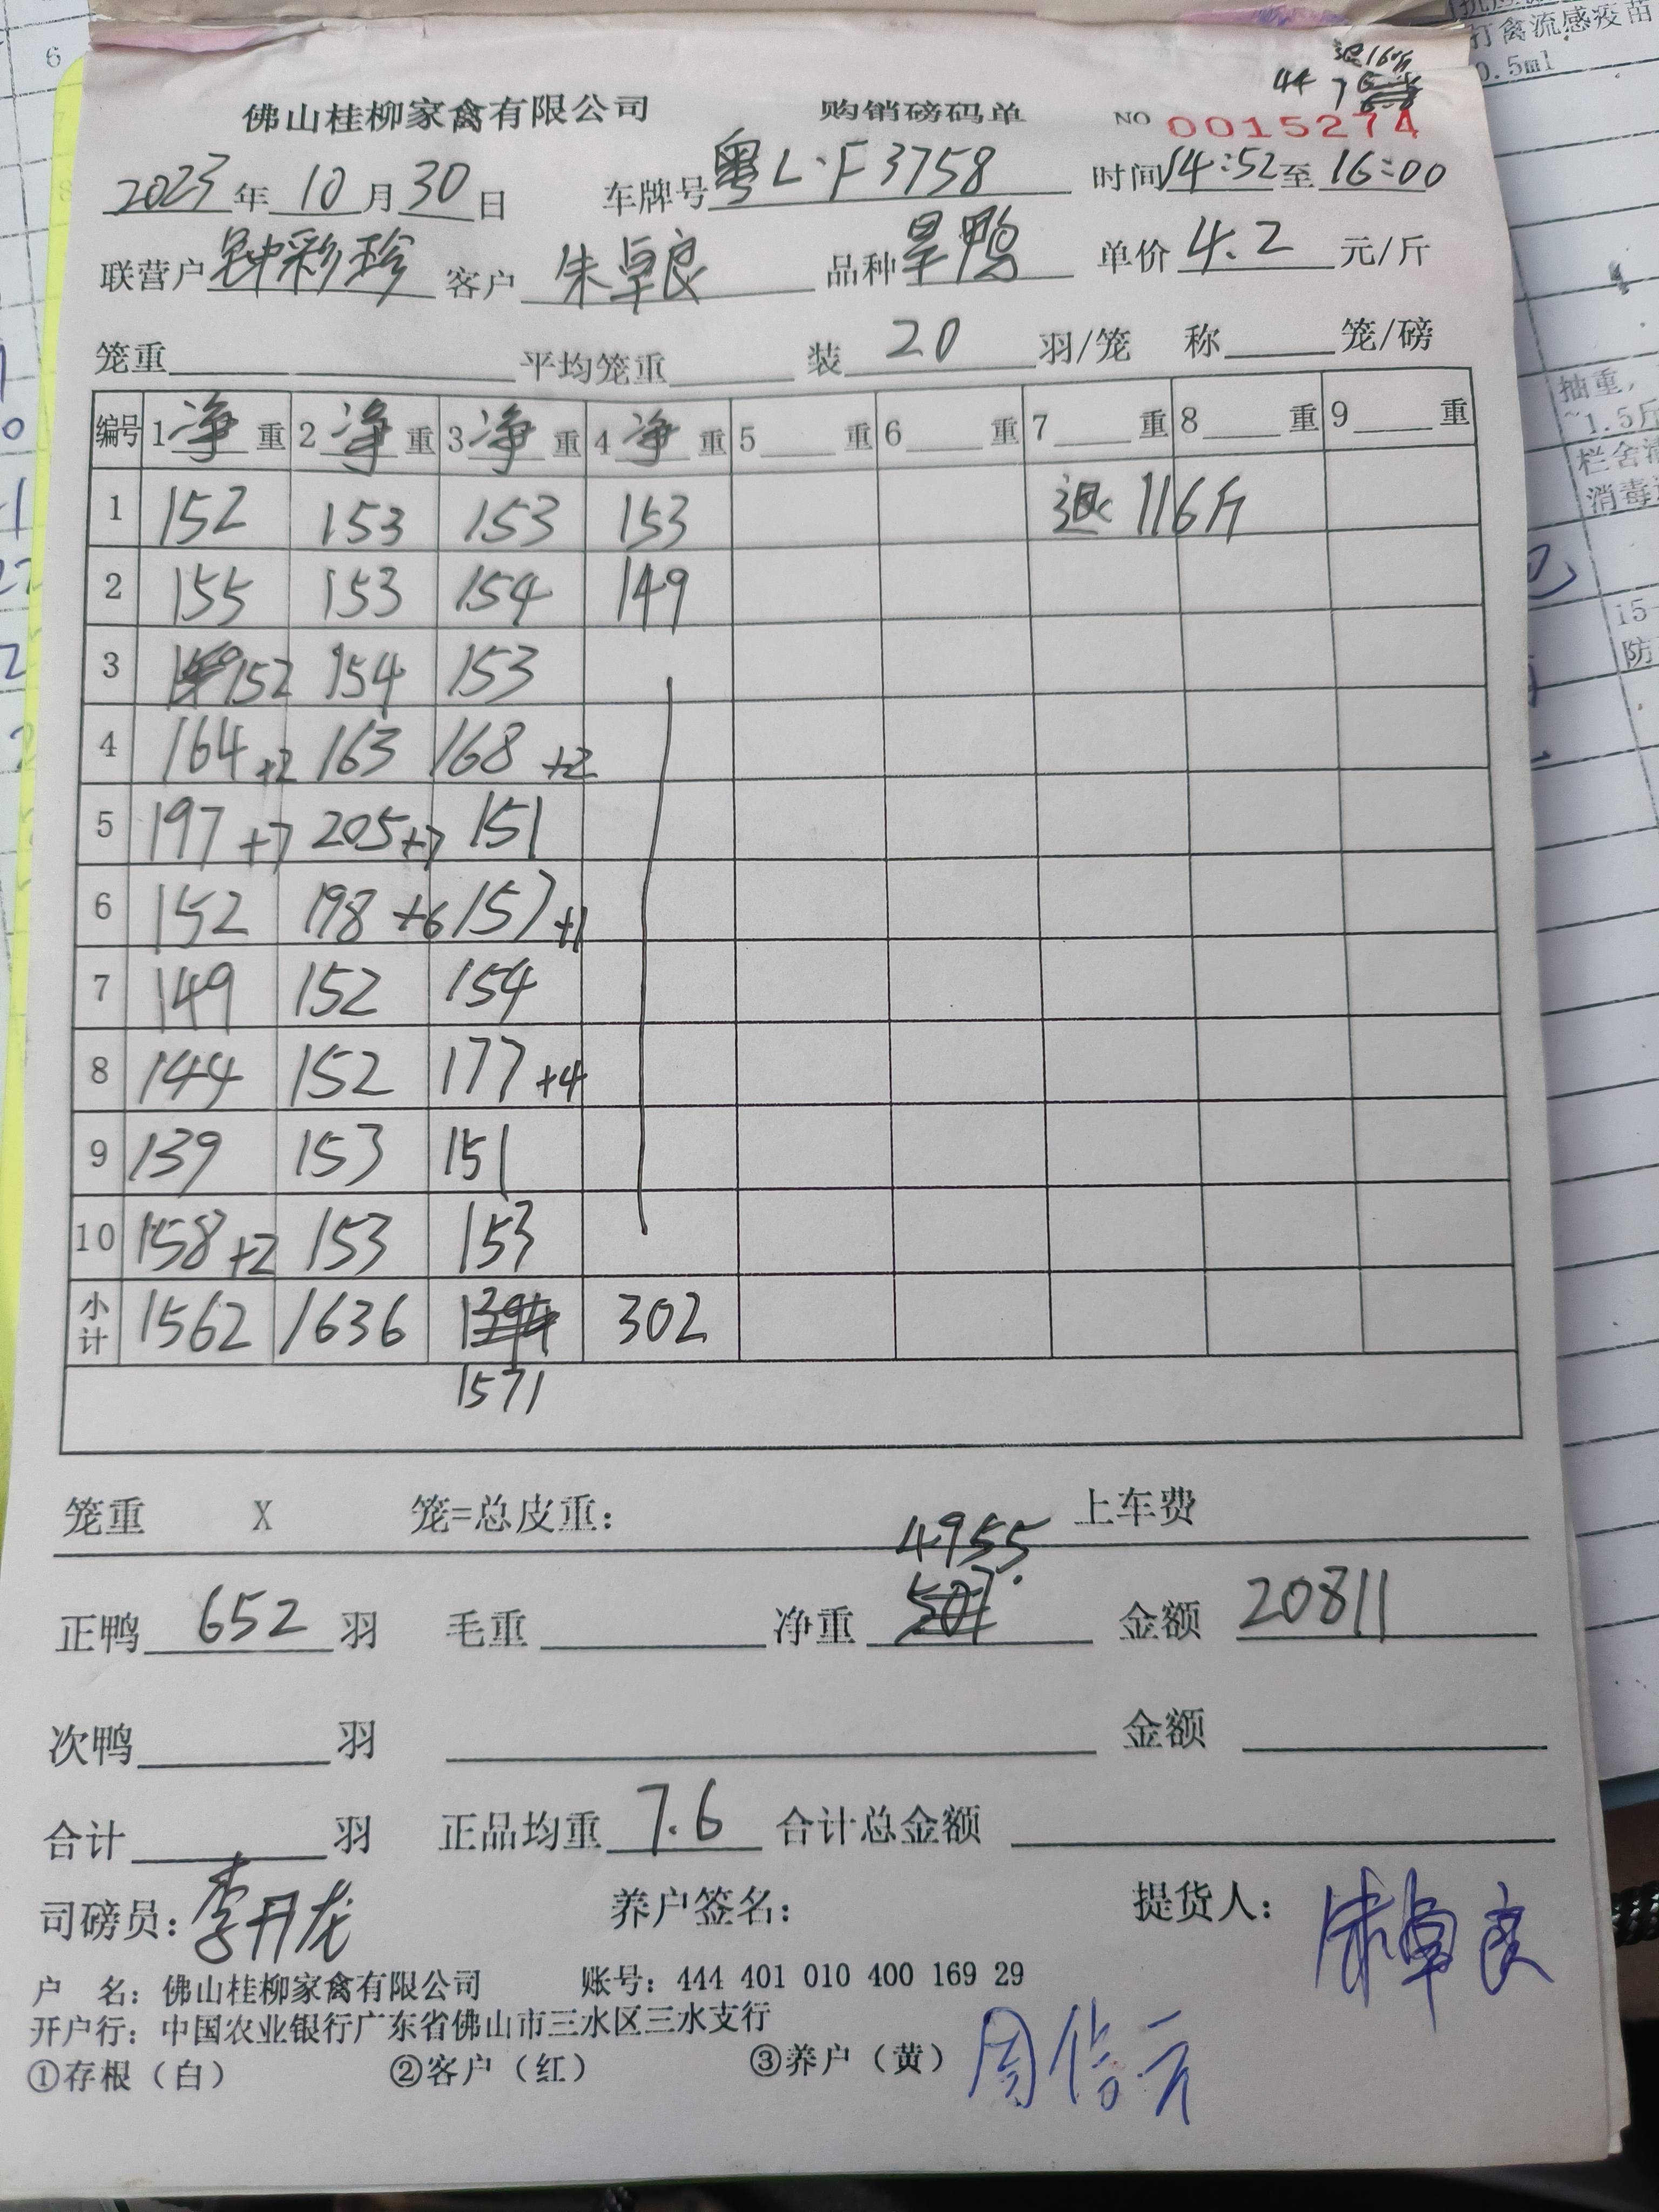 退16斤
44 7
佛山桂柳家禽有限公司 购销磅码单 NO 0015274
2023年10月30日 车牌号粤L·F3758 时间14:52至16:00
联营户钟彩珍 客户朱卓良 品种旱鸭 单价4.2元/斤
笼重 平均笼重 装20羽/笼 称 笼/磅
编号 1净重 2净重 3净重 4净重 5 重 6 重 7 重 8 重 9 重
1 152 153 153 153 退116斤
2 155 153 154 149
3 152 154 153
4 164+2 163 168+2
5 197+7 205+7 151
6 152 198+6 157+1
7 149 152 154
8 144 152 177+4
9 139 153 151
10 158+2 153 153
小计 1562 1636 1394 302
1571
笼重 X 笼=总皮重: 上车费
4955
正鸭652羽 毛重 净重 金额20811
次鸭 羽 金额
合计 羽 正品均重7.6 合计总金额
司磅员:李丹龙 养户签名: 提货人:朱卓良
户 名:佛山桂柳家禽有限公司 账号:444 401 010 400 169 29
开户行:中国农业银行广东省佛山市三水区三水支行
①存根(白) ②客户(红) ③养户(黄)
6
打禽流感疫苗
0.5ml
抽重,
~1.5斤
栏舍清
消毒
15-
防